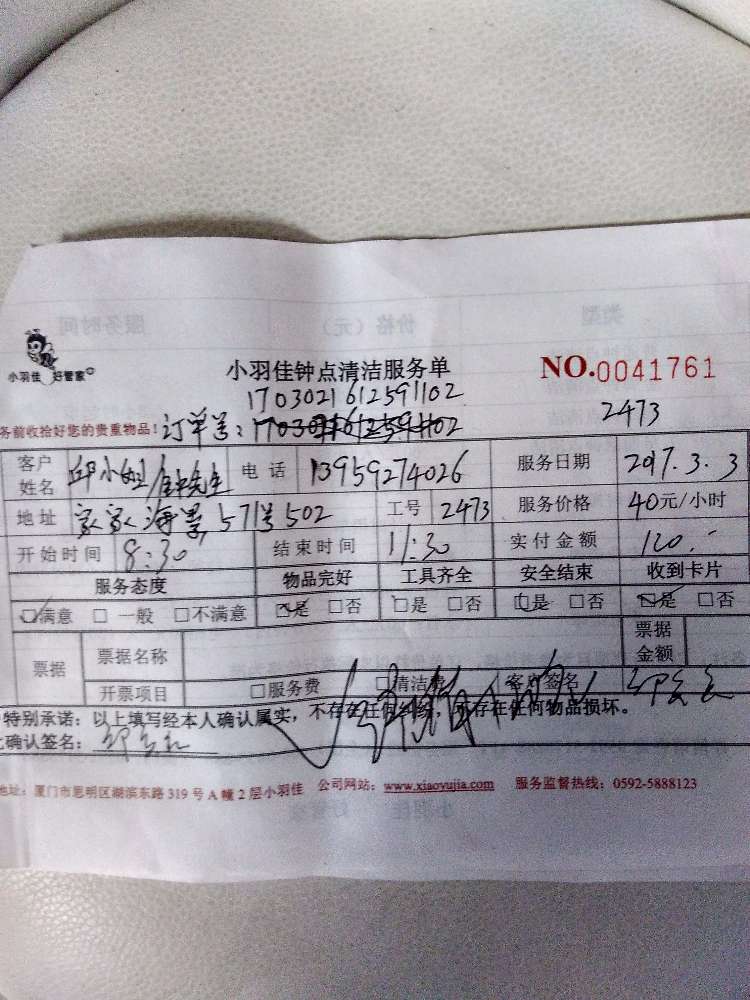 小羽佳 好管家
小羽佳钟点清洁服务单
NO.0041761
1703021612591102
务前收拾好您的贵重物品!订单号:
2473
客户姓名 邱小姐/钟先生 电话 13959274026 服务日期 2017.3.3
地址 家家海景571号502 工号 2473 服务价格 40元/小时
开始时间 8:30 结束时间 11:30 实付金额 120.-
服务态度 物品完好 工具齐全 安全结束 收到卡片
☑满意 □一般 □不满意 ☑是 □否 □是 □否 □是 □否 ☑是 □否
票据 票据名称 票据金额
开票项目 □服务费 □清洁费 客户签名
特别承诺:以上填写经本人确认属实,不存在任何纠纷,不存在任何物品损坏。
确认签名:
地址:厦门市思明区湖滨东路319号A幢2层小羽佳 公司网站:www.xiaoyujia.com 服务监督热线:0592-5888123